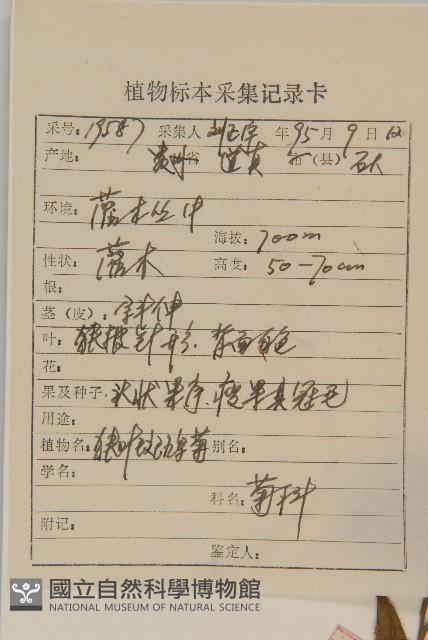 植物标本采集记录卡
采号：19587 采集人 刘正宇 年95月9日12
产地：贵州省 道真 市（县）
环境：灌木丛中
海拔：700m
性状：灌木 高度：50-70cm
根：
茎（皮）：斜伸
叶：披针形，背面白色
花：
果及种子：头状果序，瘦果具冠毛
用途：
植物名： 别名：
学名：
科名：菊科
附记：
鉴定人：
國立自然科學博物館
NATIONAL MUSEUM OF NATURAL SCIENCE